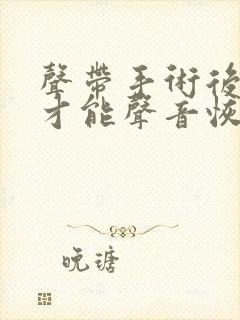 聲帶手術後
才能聲音恢
晚璂